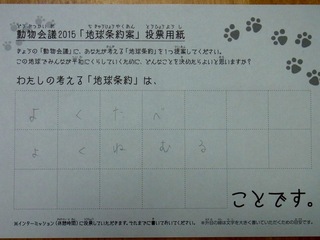 動物会議2015「地球条約案」投票用紙
きょうの「動物会議」に、あなたが考える「地球条約」を1つ提案してください。
この地球でみんなが平和にくらしていくために、どんなことを決めたらよいと思いますか?
わたしの考える「地球条約」は、
よくたべ
よくねむる
ことです。
※インターミッション(休憩時間)に投票していただきます。それまでに書いておいてください。